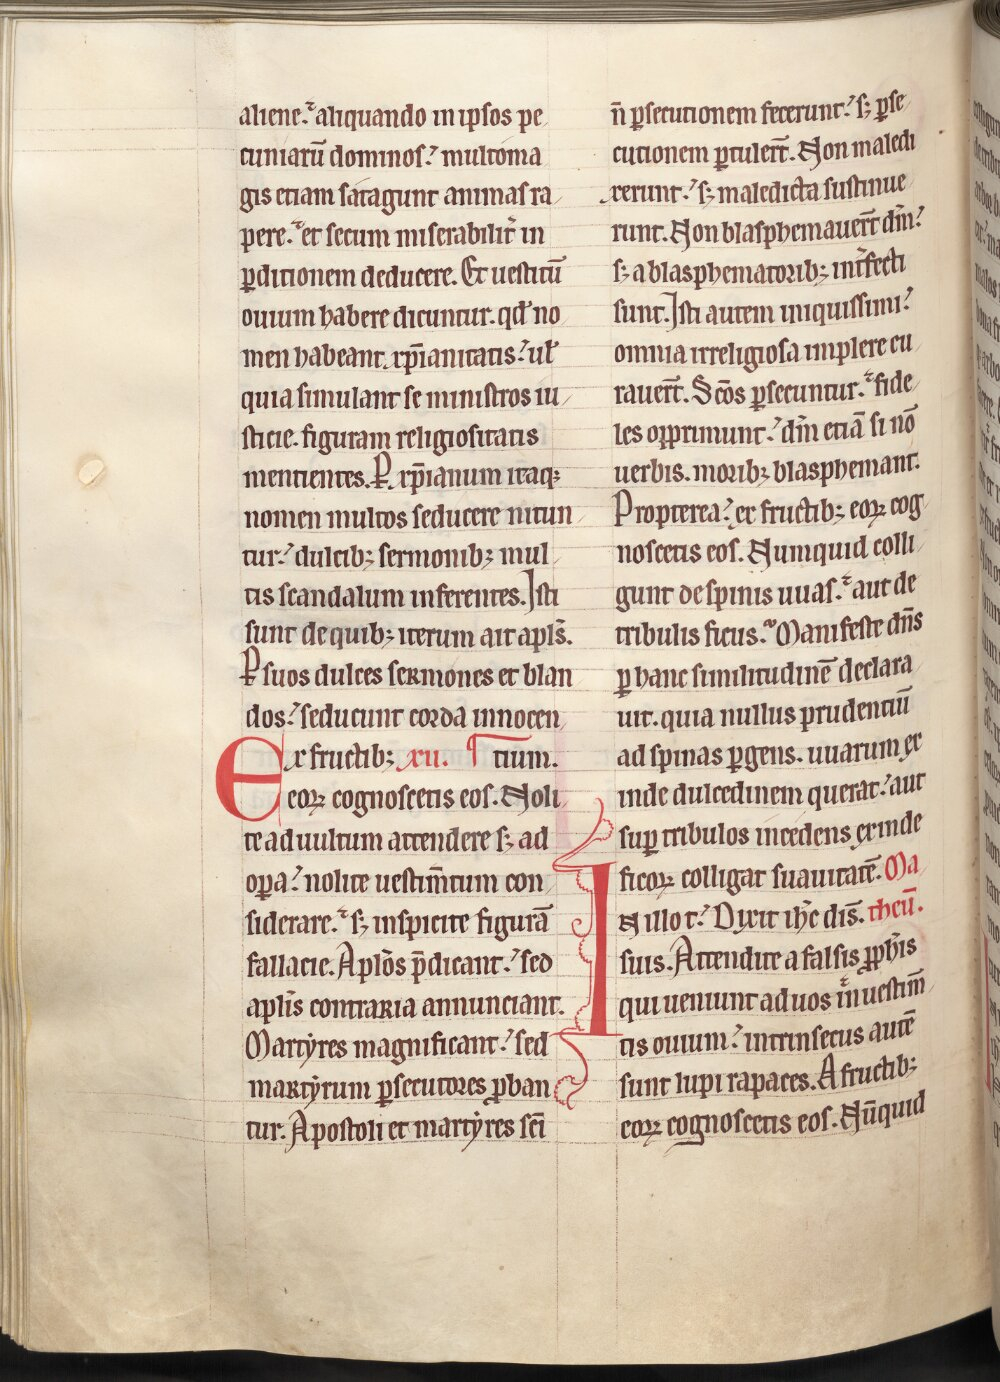 aliene. aliquando in ipsos pe
cuniarū dominos. multoma
gis etiam satagunt animas ra
pere. et secum miserabilit̄ in
ꝑditionem deducere. Et uestitū
ouium habere dicuntur. qd̄ no
men habeant xp̄ianitatis. ul̄
quia simulant se ministros iu
sticie. figuram religiositatis
mentientes. Ꝑ xp̄ianum itaqꝫ
nomen multos seducere nitun
tur. dulcibꝫ sermonibꝫ mul
tis scandalum inferentes. Isti
sunt de quibꝫ iterum ait apl̄s.
Ꝑ suos dulces sermones et blan
dos. seducunt corda innocen
Ex fructibꝫ xii. ¶ tium.
eoꝝ cognoscetis eos. Noli
te ad uultum attendere sꝫ ad
oꝑa. nolite uestim̄tum con
siderare. sꝫ inspicite figurā
fallacie. Apl̄os p̄dicant. sed
apl̄is contraria annunciant.
Martẏres magnificant. sed
martẏrum ꝑsecutores ꝓban
tur. Apostoli et martẏres sc̄i
n̄ ꝑsecutionem fecerunt. sꝫ ꝑse
cutionem ꝑtuler̄t. Non maledi
xerunt. sꝫ maledicta sustinue
runt. Non blasphemauer̄t dn̄m.
sꝫ a blasphematoribꝫ int̄fecti
sunt. Isti autem iniquissimi.
omnia irreligiosa implere cu
rauer̄t. Sc̄os ꝑsecuntur. fide
les opprimunt. dn̄m etiā si nō
uerbis. moribꝫ blasphemant.
Propterea. ex fructibꝫ eoꝝ cog
noscetis eos. Numquid colli
gunt de spinis uuas. aut de
tribulis ficus. Manifeste dn̄s
ꝑ hanc similitudinē declara
uit. quia nullus prudentiū
ad spinas ꝑgens. uuarum ex
inde dulcedinem querat. aut
suꝑ tribulos incedens exinde
ficoꝝ colligat suauitatē. Ma
In illo t. Dixit ih̄c dis̄. theū.
suis. Attendite a falsis ꝓph̄is
qui ueniunt ad uos in uestim̄
tis ouium. intrinsecus autē
sunt lupi rapaces. A fructibꝫ
eoꝝ cognoscetis eos. Nūquid